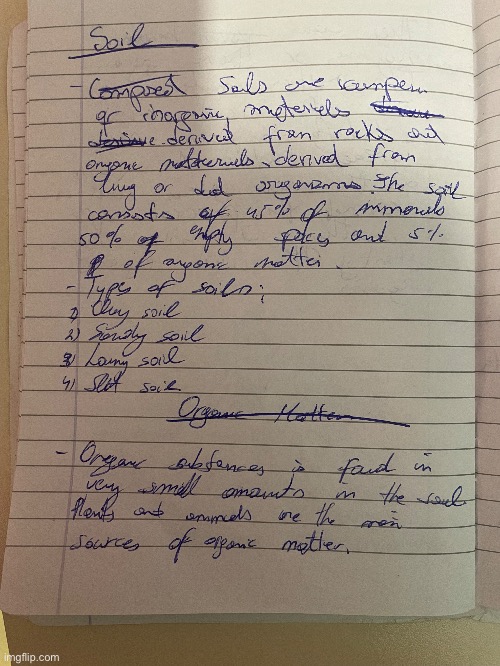 Soil
- Composed Soils are compon
or inorganic materiels
derived from rocks and
organic matteriels derived from
living or did organisms. The soil
consists of 45% of minerals
50% of empty spaces and 5%
of organic matter.
- Types of soils:
1) Clay soil
2) Sandy soil
3) Loamy soil
4) Slit soil
Organic Matter
- Organic substances is found in
very small amounts in the soil
Plants and animals are the main
sources of organic matter.
imgflip.com